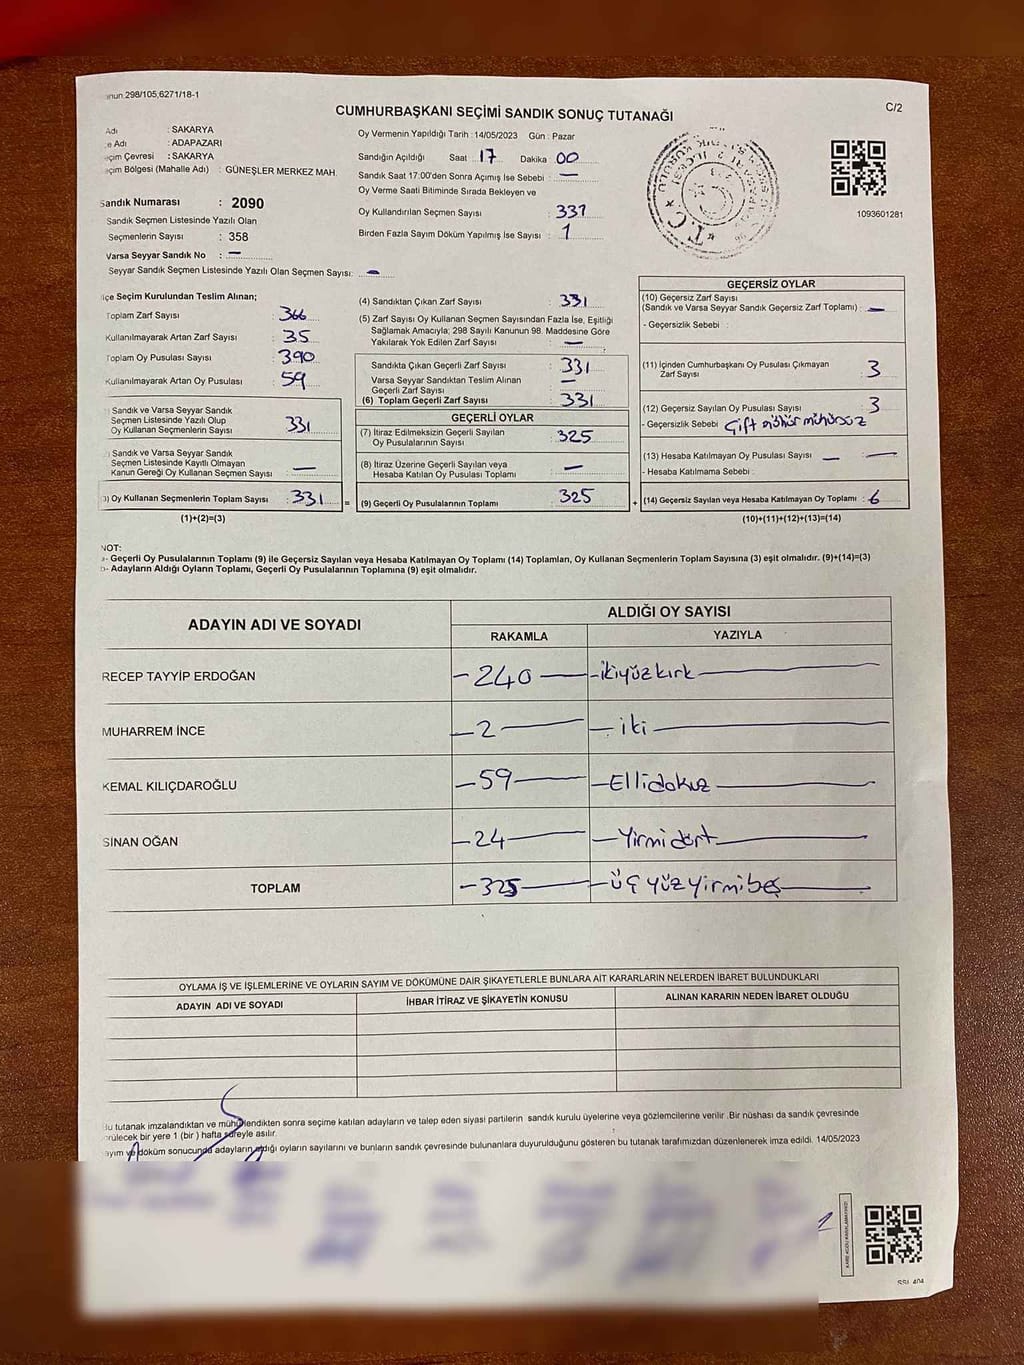 nun:298/105,6271/18-1
C/2
CUMHURBAŞKANI SEÇİMİ SANDIK SONUÇ TUTANAĞI
Adı : SAKARYA
e Adı : ADAPAZARI
çim Çevresi : SAKARYA
çim Bölgesi (Mahalle Adı) : GÜNEŞLER MERKEZ MAH.
Sandık Numarası : 2090
Sandık Seçmen Listesinde Yazılı Olan
Seçmenlerin Sayısı : 358
Varsa Seyyar Sandık No : —
Seyyar Sandık Seçmen Listesinde Yazılı Olan Seçmen Sayısı: —
Oy Vermenin Yapıldığı Tarih : 14/05/2023 Gün : Pazar
Sandığın Açıldığı Saat 17 Dakika 00
Sandık Saat 17:00'den Sonra Açımış İse Sebebi : —
Oy Verme Saati Bitiminde Sırada Bekleyen ve
Oy Kullandırılan Seçmen Sayısı : 331
Birden Fazla Sayım Döküm Yapılmış İse Sayısı : 1
1093601281
lçe Seçim Kurulundan Teslim Alınan;
Toplam Zarf Sayısı : 366
Kullanılmayarak Artan Zarf Sayısı : 35
Toplam Oy Pusulası Sayısı : 390
Kullanılmayarak Artan Oy Pusulası : 59
) Sandık ve Varsa Seyyar Sandık
Seçmen Listesinde Yazılı Olup
Oy Kullanan Seçmenlerin Sayısı : 331
) Sandık ve Varsa Seyyar Sandık
Seçmen Listesinde Kayıtlı Olmayan
Kanun Gereği Oy Kullanan Seçmen Sayısı : —
3) Oy Kullanan Seçmenlerin Toplam Sayısı : 331 =
(1)+(2)=(3)
(4) Sandıktan Çıkan Zarf Sayısı : 331
(5) Zarf Sayısı Oy Kullanan Seçmen Sayısından Fazla İse, Eşitliği
Sağlamak Amacıyla; 298 Sayılı Kanunun 98. Maddesine Göre
Yakılarak Yok Edilen Zarf Sayısı : —
Sandıkta Çıkan Geçerli Zarf Sayısı : 331
Varsa Seyyar Sandıktan Teslim Alınan
Geçerli Zarf Sayısı : —
(6) Toplam Geçerli Zarf Sayısı : 331
GEÇERLİ OYLAR
(7) İtiraz Edilmeksizin Geçerli Sayılan
Oy Pusulalarının Sayısı : 325
(8) İtiraz Üzerine Geçerli Sayılan veya
Hesaba Katılan Oy Pusulası Toplamı : —
(9) Geçerli Oy Pusulalarının Toplamı : 325 +
GEÇERSİZ OYLAR
(10) Geçersiz Zarf Sayısı
(Sandık ve Varsa Seyyar Sandık Geçersiz Zarf Toplamı) : —
- Geçersizlik Sebebi :
(11) İçinden Cumhurbaşkanı Oy Pusulası Çıkmayan
Zarf Sayısı : 3
(12) Geçersiz Sayılan Oy Pusulası Sayısı : 3
- Geçersizlik Sebebi : Çift mühür mühürsüz
(13) Hesaba Katılmayan Oy Pusulası Sayısı : — —
- Hesaba Katılmama Sebebi :
(14) Geçersiz Sayılan veya Hesaba Katılmayan Oy Toplamı : 6
(10)+(11)+(12)+(13)=(14)
NOT:
a- Geçerli Oy Pusulalarının Toplamı (9) ile Geçersiz Sayılan veya Hesaba Katılmayan Oy Toplamı (14) Toplamları, Oy Kullanan Seçmenlerin Toplam Sayısına (3) eşit olmalıdır. (9)+(14)=(3)
b- Adayların Aldığı Oyların Toplamı, Geçerli Oy Pusulalarının Toplamına (9) eşit olmalıdır.
ADAYIN ADI VE SOYADI
ALDIĞI OY SAYISI
RAKAMLA YAZIYLA
RECEP TAYYİP ERDOĞAN —240— —ikiyüzkırk—
MUHARREM İNCE —2— —iki—
KEMAL KILIÇDAROĞLU —59— —Ellidokuz—
SİNAN OĞAN —24— —Yirmidört—
TOPLAM —325— —üçyüzyirmibeş—
OYLAMA İŞ VE İŞLEMLERİNE VE OYLARIN SAYIM VE DÖKÜMÜNE DAİR ŞİKAYETLERLE BUNLARA AİT KARARLARIN NELERDEN İBARET BULUNDUKLARI
ADAYIN ADI VE SOYADI İHBAR İTİRAZ VE ŞİKAYETİN KONUSU ALINAN KARARIN NEDEN İBARET OLDUĞU
Bu tutanak imzalandıktan ve mühürlendikten sonra seçime katılan adayların ve talep eden siyasi partilerin sandık kurulu üyelerine veya gözlemcilerine verilir .Bir nüshası da sandık çevresinde
rülecek bir yere 1 (bir ) hafta süreyle asılır.
ayım ve döküm sonucunda adayların aldığı oyların sayılarını ve bunların sandık çevresinde bulunanlara duyurulduğunu gösteren bu tutanak tarafımızdan düzenlenerek imza edildi. 14/05/2023